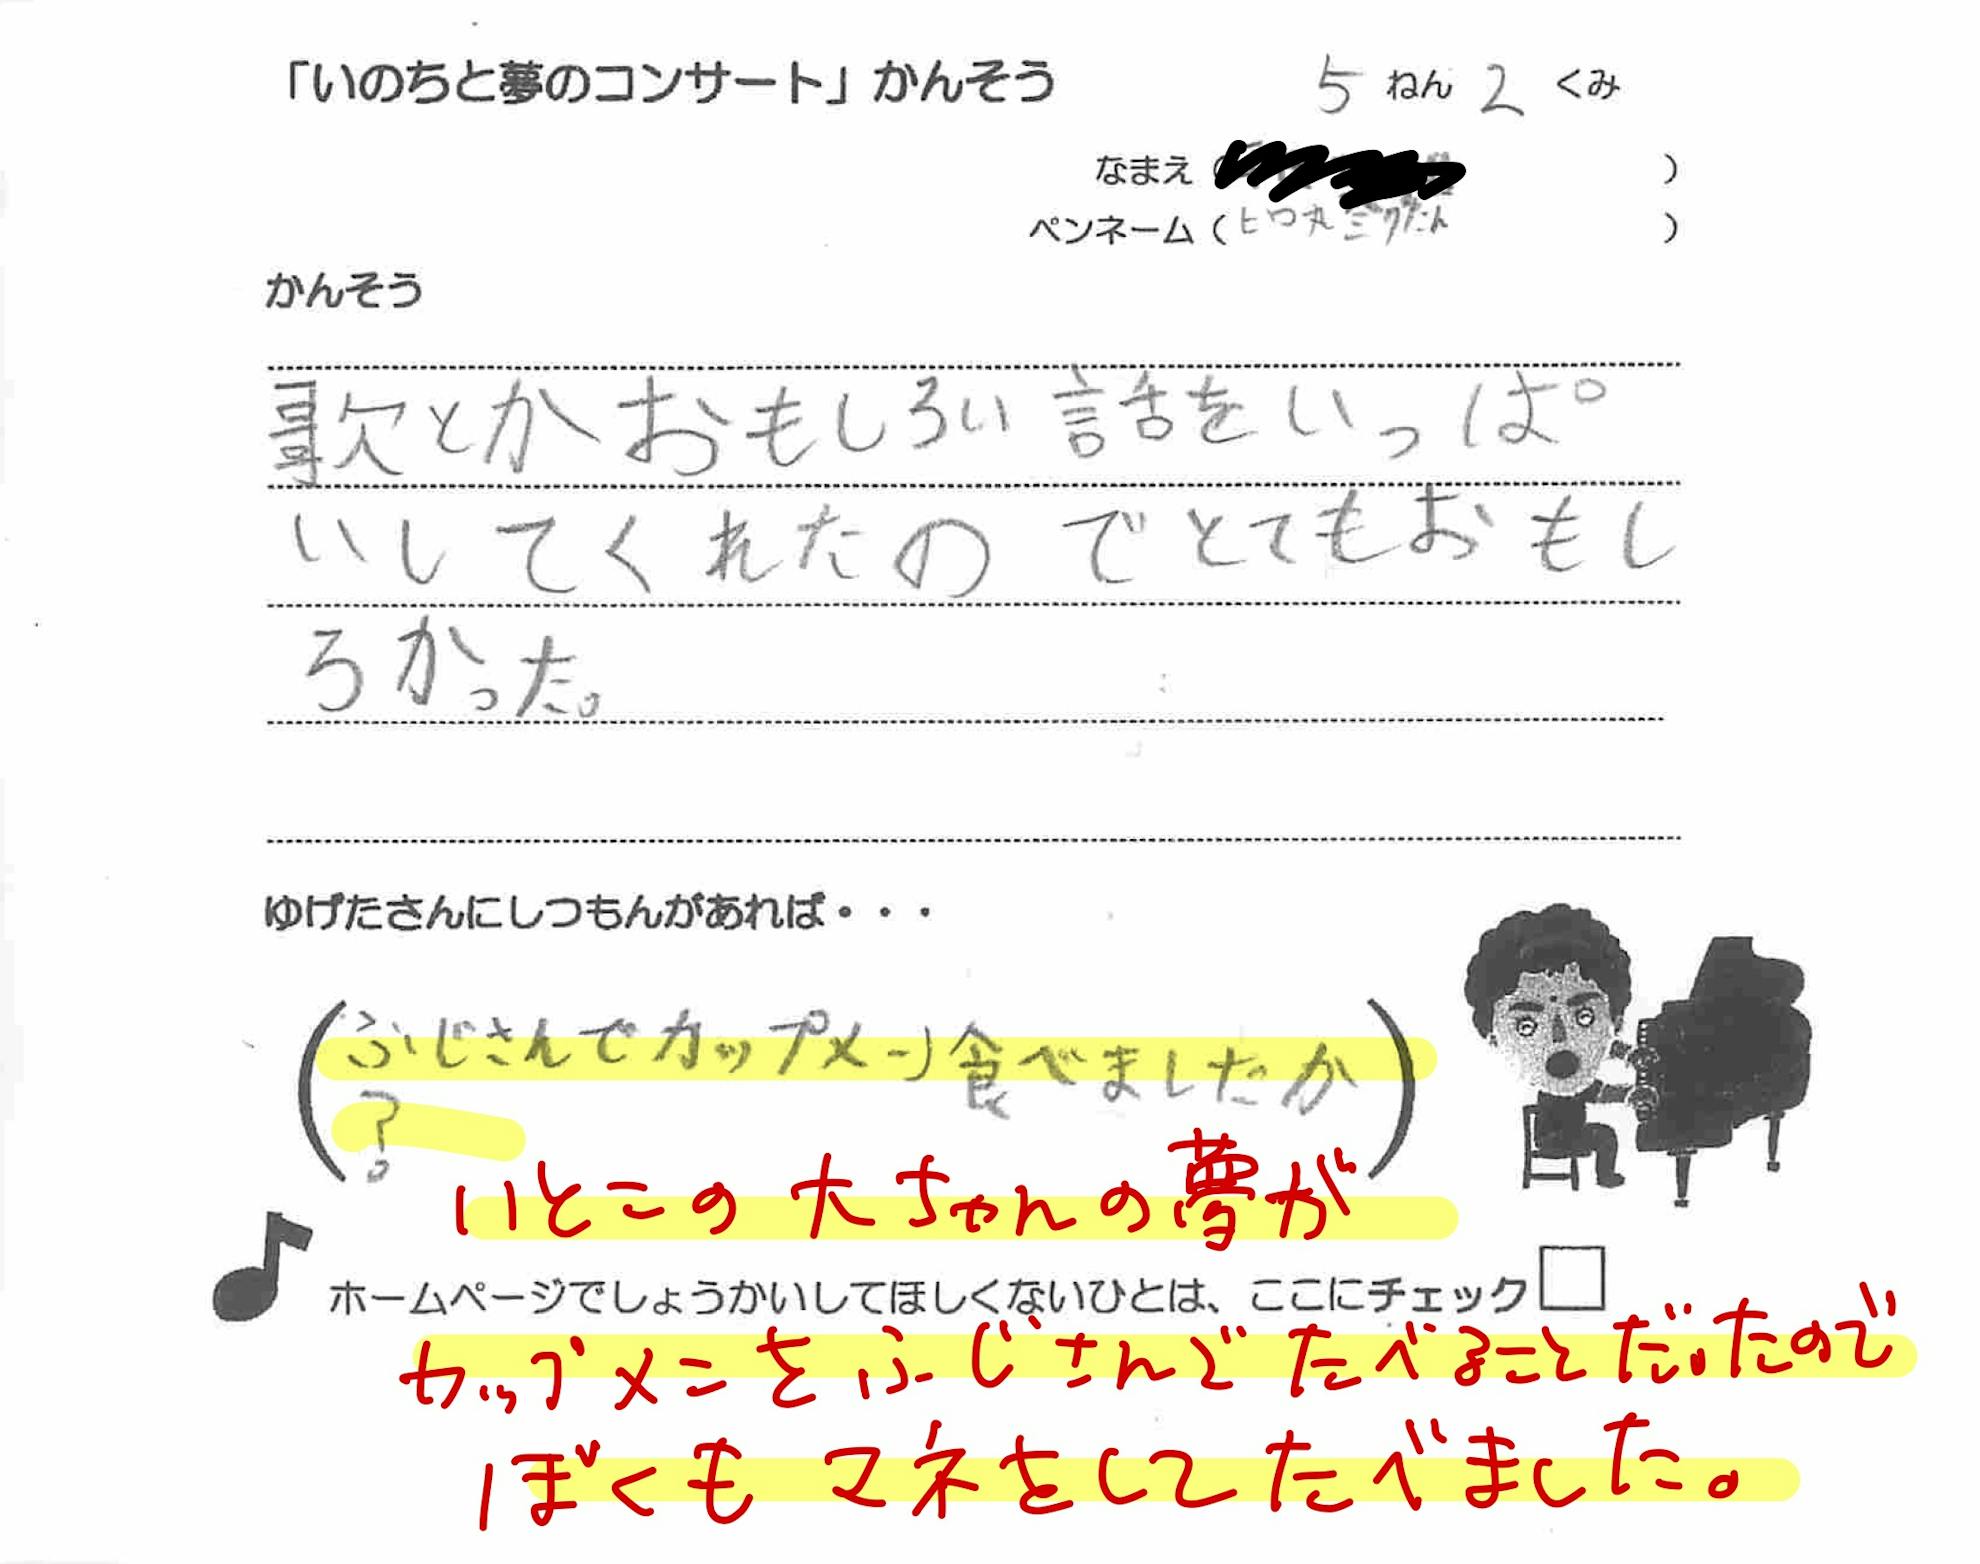 「いのちと夢のコンサート」かんそう 5 ねん 2 くみ
なまえ ( )
ペンネーム ( )
かんそう
歌とかおもしろい話をいっぱ
いしてくれたのでとてもおもし
ろかった。
ゆげたさんにしつもんがあれば・・・
(ふじさんでカップメン食べましたか
?)
いとこの大ちゃんの夢が
ホームページでしょうかいしてほしくないひとは、ここにチェック
カップメンをふじさんでたべることだったので
ぼくもマネをしてたべました。